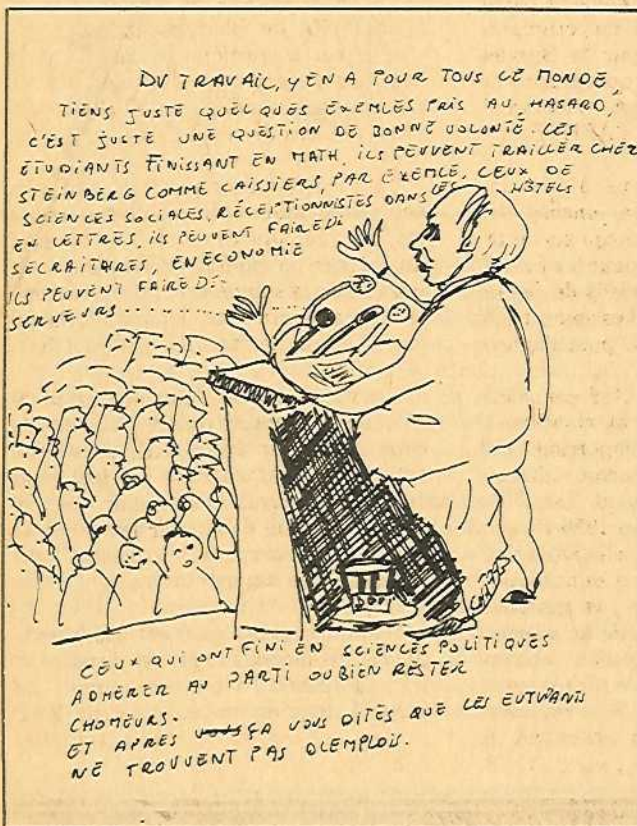 DU TRAVAIL, Y EN A POUR TOUS LE MONDE,
TIENS JUSTE QUELQUES EXEMLES PRIS AU HASARD,
C'EST JUSTE UNE QUESTION DE BONNE VOLONTÉ. LES
ÉTUDIANTS FINISSANT EN MATH, ILS PEUVENT TRAILLER CHEZ
STEINBERG COMME CAISSIERS, PAR EXEMLE, CEUX DE
SCIENCES SOCIALES, RÉCEPTIONNISTES DANS LES HÔTELS
EN LETTRES, ILS PEUVENT FAIRE DE
SECRAITAIRES, EN ÉCONOMIE
ILS PEUVENT FAIRE DE
SERVEURS ............
CEUX QUI ONT FINI EN SCIENCES POLITIQUES
ADHÉRER AU PARTI OU BIEN RESTER
CHOMEURS.
ET APRES ÇA VOUS DITES QUE LES EUTUDIANTS
NE TROUVENT PAS D'EMPLOIS.